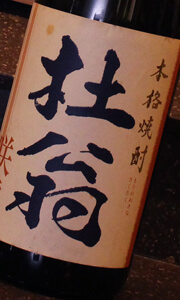 本格焼酎
杜翁